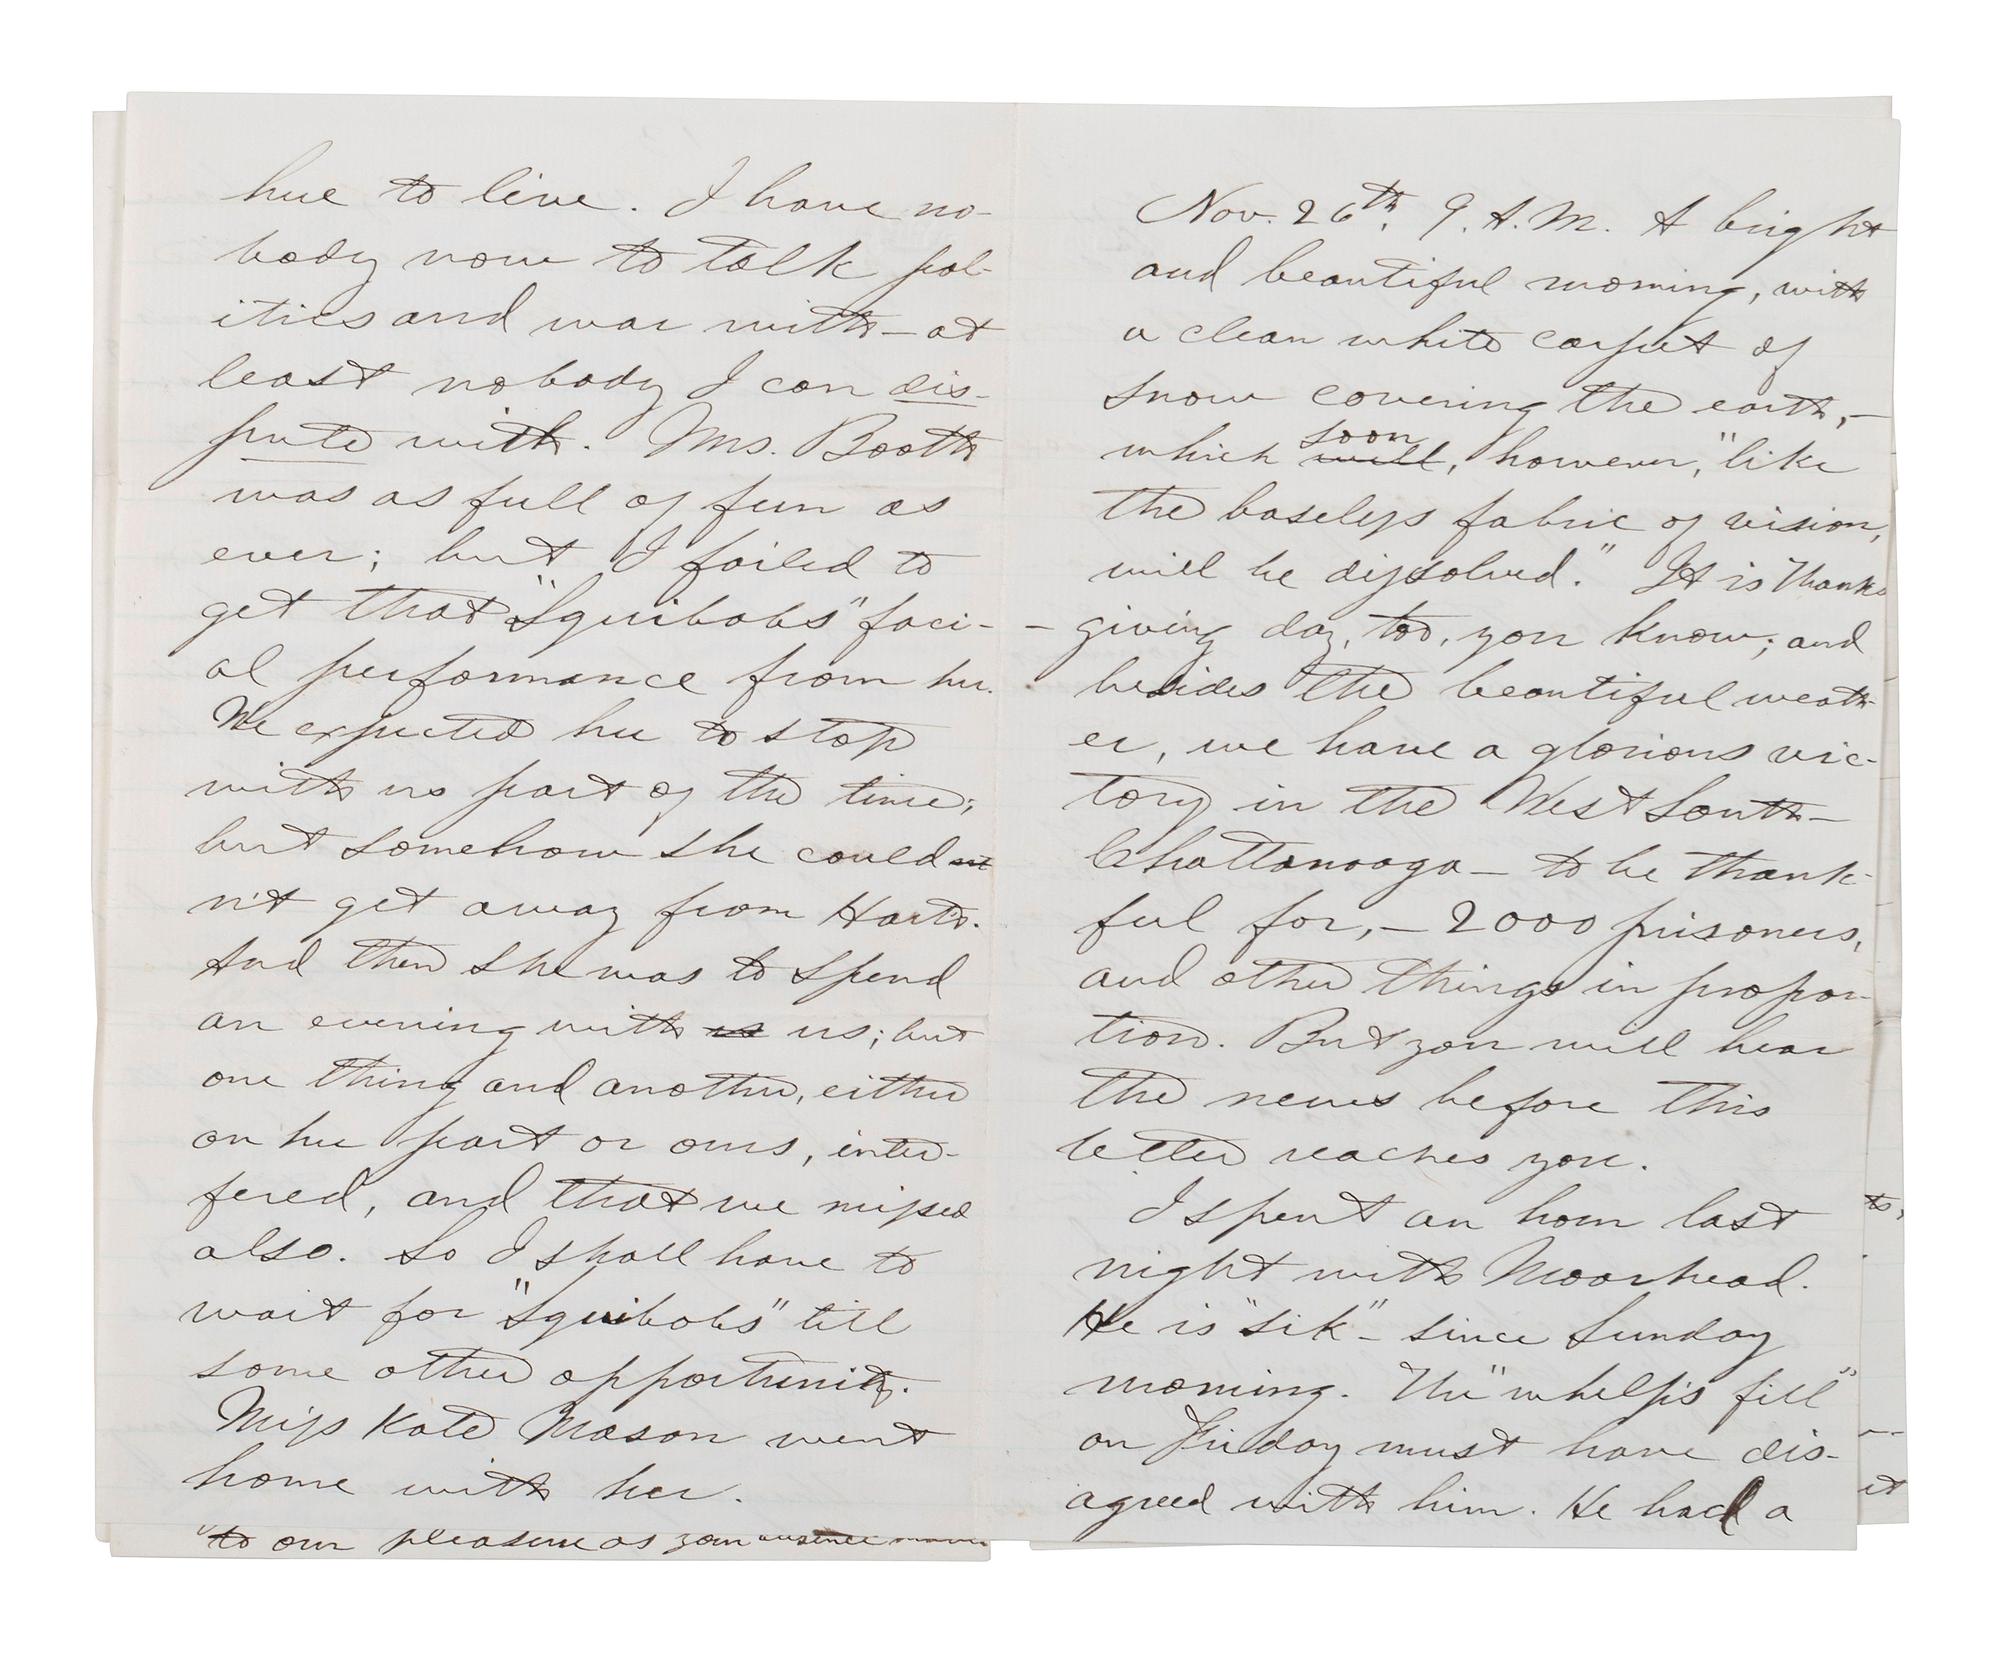 here to live. I have no-
body now to talk pol-
itics and war with – at
least nobody I can dis-
pute with. Mrs. Booth
was as full of fun as
ever; but I failed to
get that "Squibobs" faci-
al performance from her.
We expected her to stop
with us part of the time;
but somehow she could
n't get away from Harts.
And then she was to spend
an evening with us us; but
one thing and another, either
on her part or ours, inter-
fered, and that we missed
also. So I shall have to
wait for "Squibobs" till
some other opportunity.
Miss Kate Mason went
home with her.
to our pleasure as your absence
Nov. 26th, 9. A.M. A bright
and beautiful morning, with
a clean white carpet of
snow covering the earth, –
which soon will, however, "like
the baseless fabric of vision,
will be dissolved." It is Thanks
– giving day, too, you know; and
besides the beautiful weath-
er, we have a glorious vic-
tory in the West South –
Chattanooga – to be thank-
ful for, – 2000 prisoners,
and other things in propor-
tion. But you will hear
the news before this
letter reaches you.
I spent an hour last
night with Moorhead.
He is "sik" – since Sunday
morning. The "whelp's fill"
on Friday must have dis-
agreed with him. He had a
to,
it